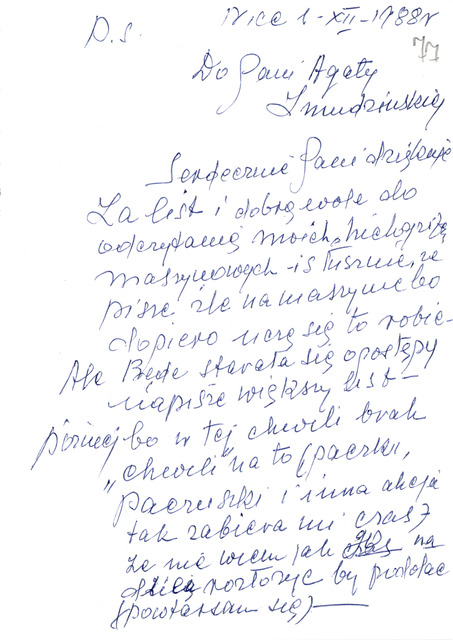 P.S. Nice 1-XII-1988r
77
Do Pani Agaty
Żmudzińskiej
Serdecznie Pani dziękuję
Za list i dobrą wolę do
odczytania moich
maszynowych - i słusznie, że
piszę źle na maszynie bo
dopiero uczę się to robić -
Ale Będę starała się o postępy
napiszę większy list -
później bo w tej chwili brak
"chwili" na to (paczki,
paczuszki i inna akcja
tak zabiera mi czas,
że nie wiem jak go na
rozłożyć by podołać
(powtarzam się) -